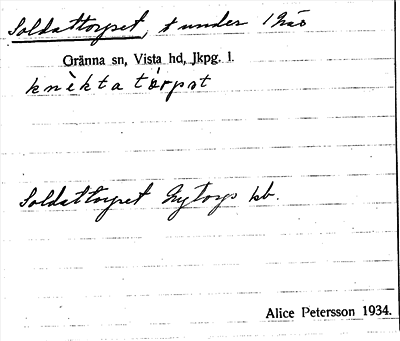 Soldattorpet, t under Uräs
Gränna sn, Vista hd, Jkpg. l.
knèktatórpet
Soldattorpet Nytorps kb.
Alice Petersson 1934.